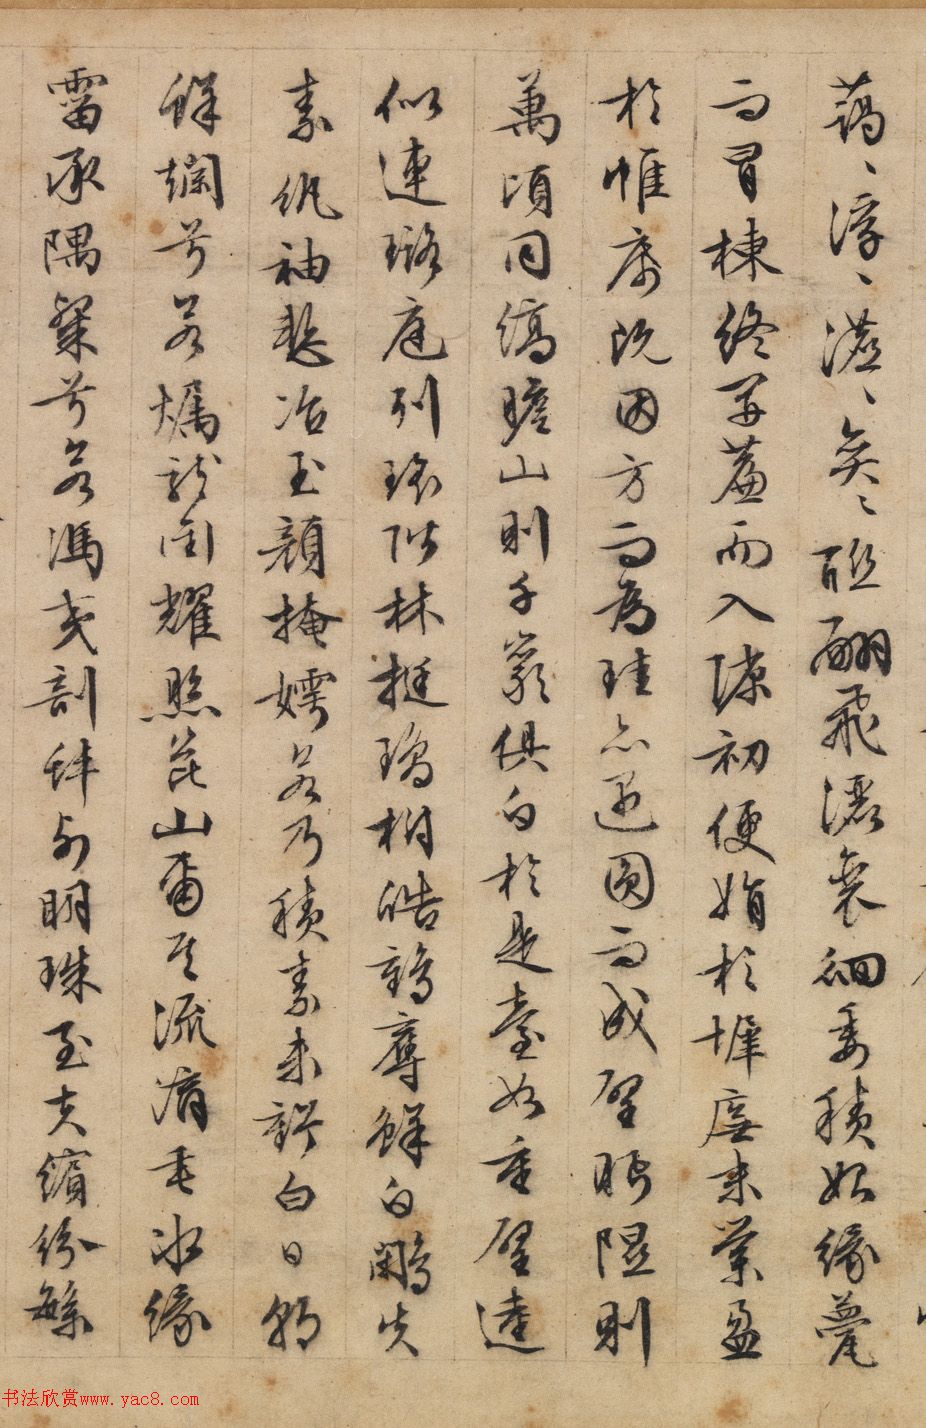 藹〻浮〻瀌〻奕〻聯翩飛灑裵徊委積始緣甍
而冒棟終開簾而入隙初便娟於墀廡末縈盈
於帷席既因方而為珪亦遇圓而成璧眄隰則
萬頃同縞瞻山則千巖俱白於是臺如重璧逵
似連璐庭列瑤階林挺瓊樹皓鶴奪鮮白鷴失
素紈袖慙冶玉顏掩嫮若乃積素未虧白日朝
鮮爛兮若燭龍銜耀照崑山爾其流滴垂冰緣
霤承隅粲兮若馮夷剖蚌列明珠至夫繽紛繁
书法欣赏www.yac8.com